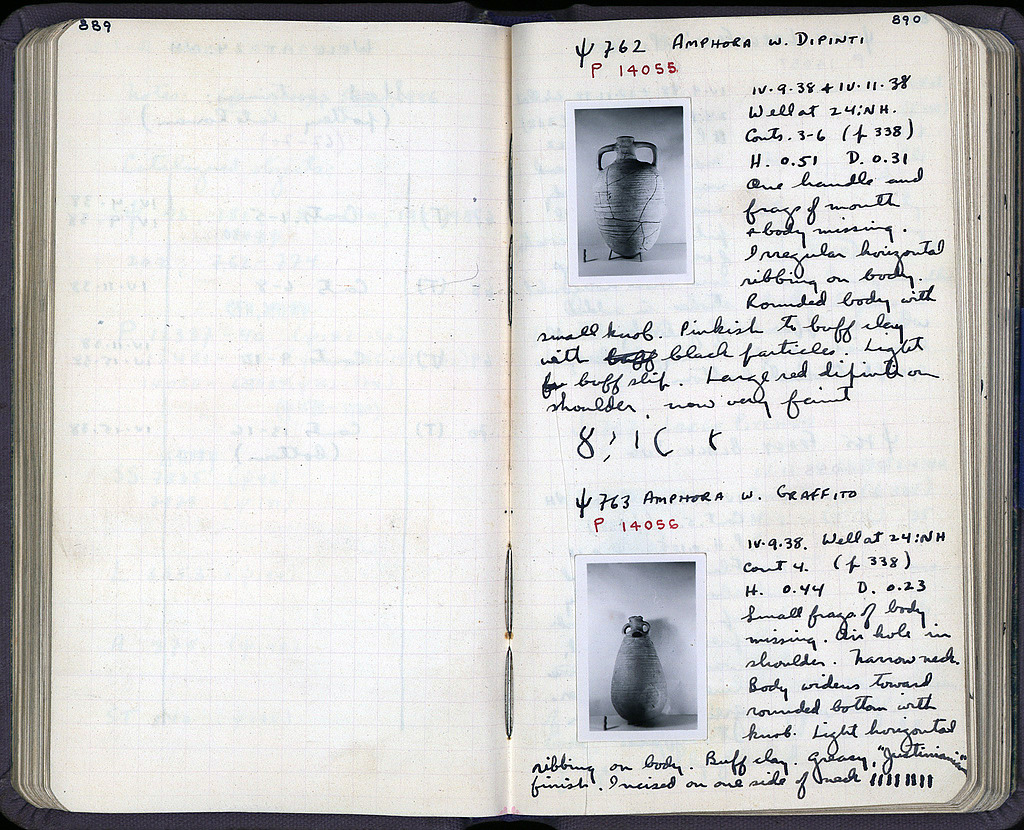 889
890
ψ 762 AMPHORA W. DIPINTI
P 14055
IV-9-38 + IV-11-38
Well at 24:NH.
Conts. 3-6 (p 338)
H. 0.51 D. 0.31
One handle and
frags of mouth
+ body missing.
Irregular horizontal
ribbing on body.
Rounded body with
small knob. Pinkish to buff clay
with buff black particles. Light
buff slip. Large red dipinti on
shoulder, now very faint
ψ 763 AMPHORA W. GRAFFITO
P 14056
IV-9-38. Well at 24:NH
Cont 4. (p 338)
H. 0.44 D. 0.23
Small frags of body
missing. Air hole in
shoulder. Narrow neck.
Body widens toward
rounded bottom with
knob. Light horizontal
ribbing on body. Buff clay. Greasy, "Justinianic"
finish. Incised on one side of neck IIIIIIII